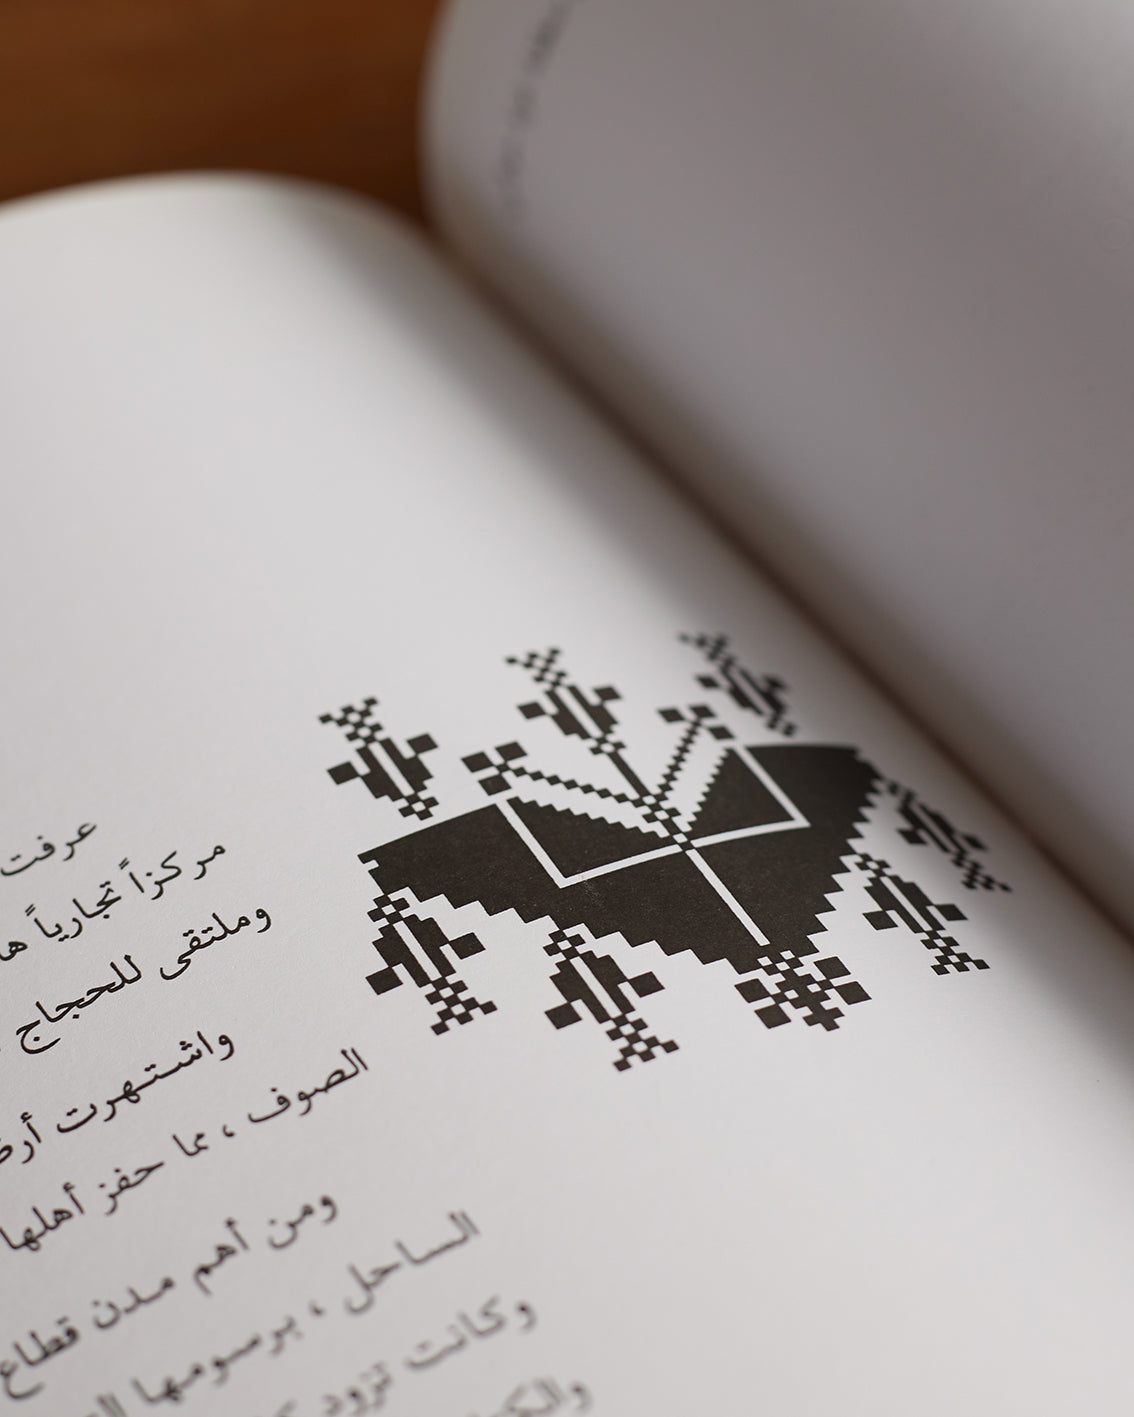 عرفت
مركزاً تجارياً
وملتقى للحجاج
واشتهرت
الصوف ، مما حفز أهلها
ومن أهم مدن قطاع
الساحل ، برسومها
وكانت تزود